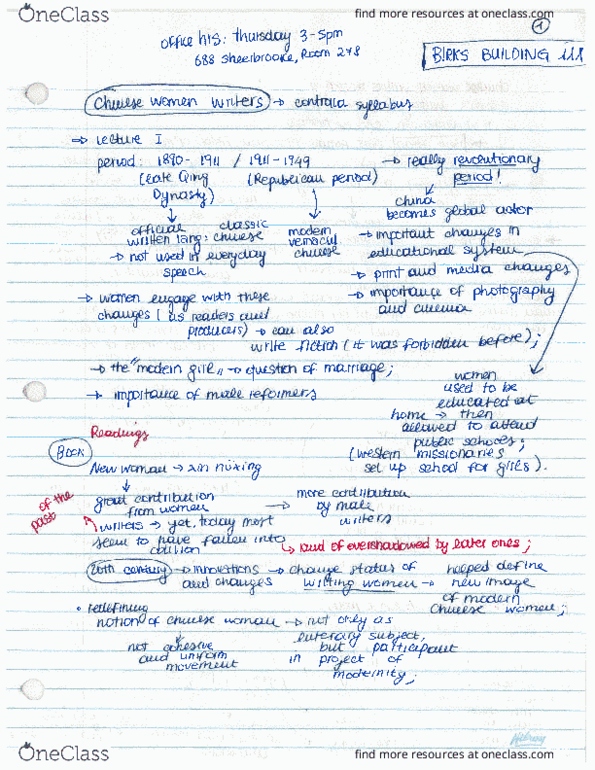 OneClass find more resources at oneclass.com
1
office hrs: thursday 3-5pm
688 Sheerbrooke, Room 248
BIRKS BUILDING 111
Chinese women writers → syllabus
⇒ Lecture I
period: 1890-1911 / 1911-1949 → really revolutionary period!
(Late Qing Dynasty) (Republican period)
China becomes global actor
official written lang: classic chinese
modern vernacul chinese
→ important changes in educational system
→ not used in everyday speech
→ print and media changes
→ women engage with these changes (as readers and producers) → can also write fiction (it was forbidden before);
→ importance of photography and cinema
→ the "modern girl" → question of marriage;
→ importance of male reformers
women used to be educated at home → then allowed to attend public schools;
(western missionaries set up school for girls).
Readings
Book
New woman → xin nüxing
great contribution from women → more contribution by male writers
of the past
writers → yet, today most seem to have fallen into oblivion
↳ kind of overshadowed by later ones;
20th century → innovations and changes → change status of writing women → helped define new image of modern Chinese women;
• redefining notion of chinese woman → not only as literary subject, but participant in project of modernity;
not cohesive and uniform movement
Hilroy
OneClass find more resources at oneclass.com